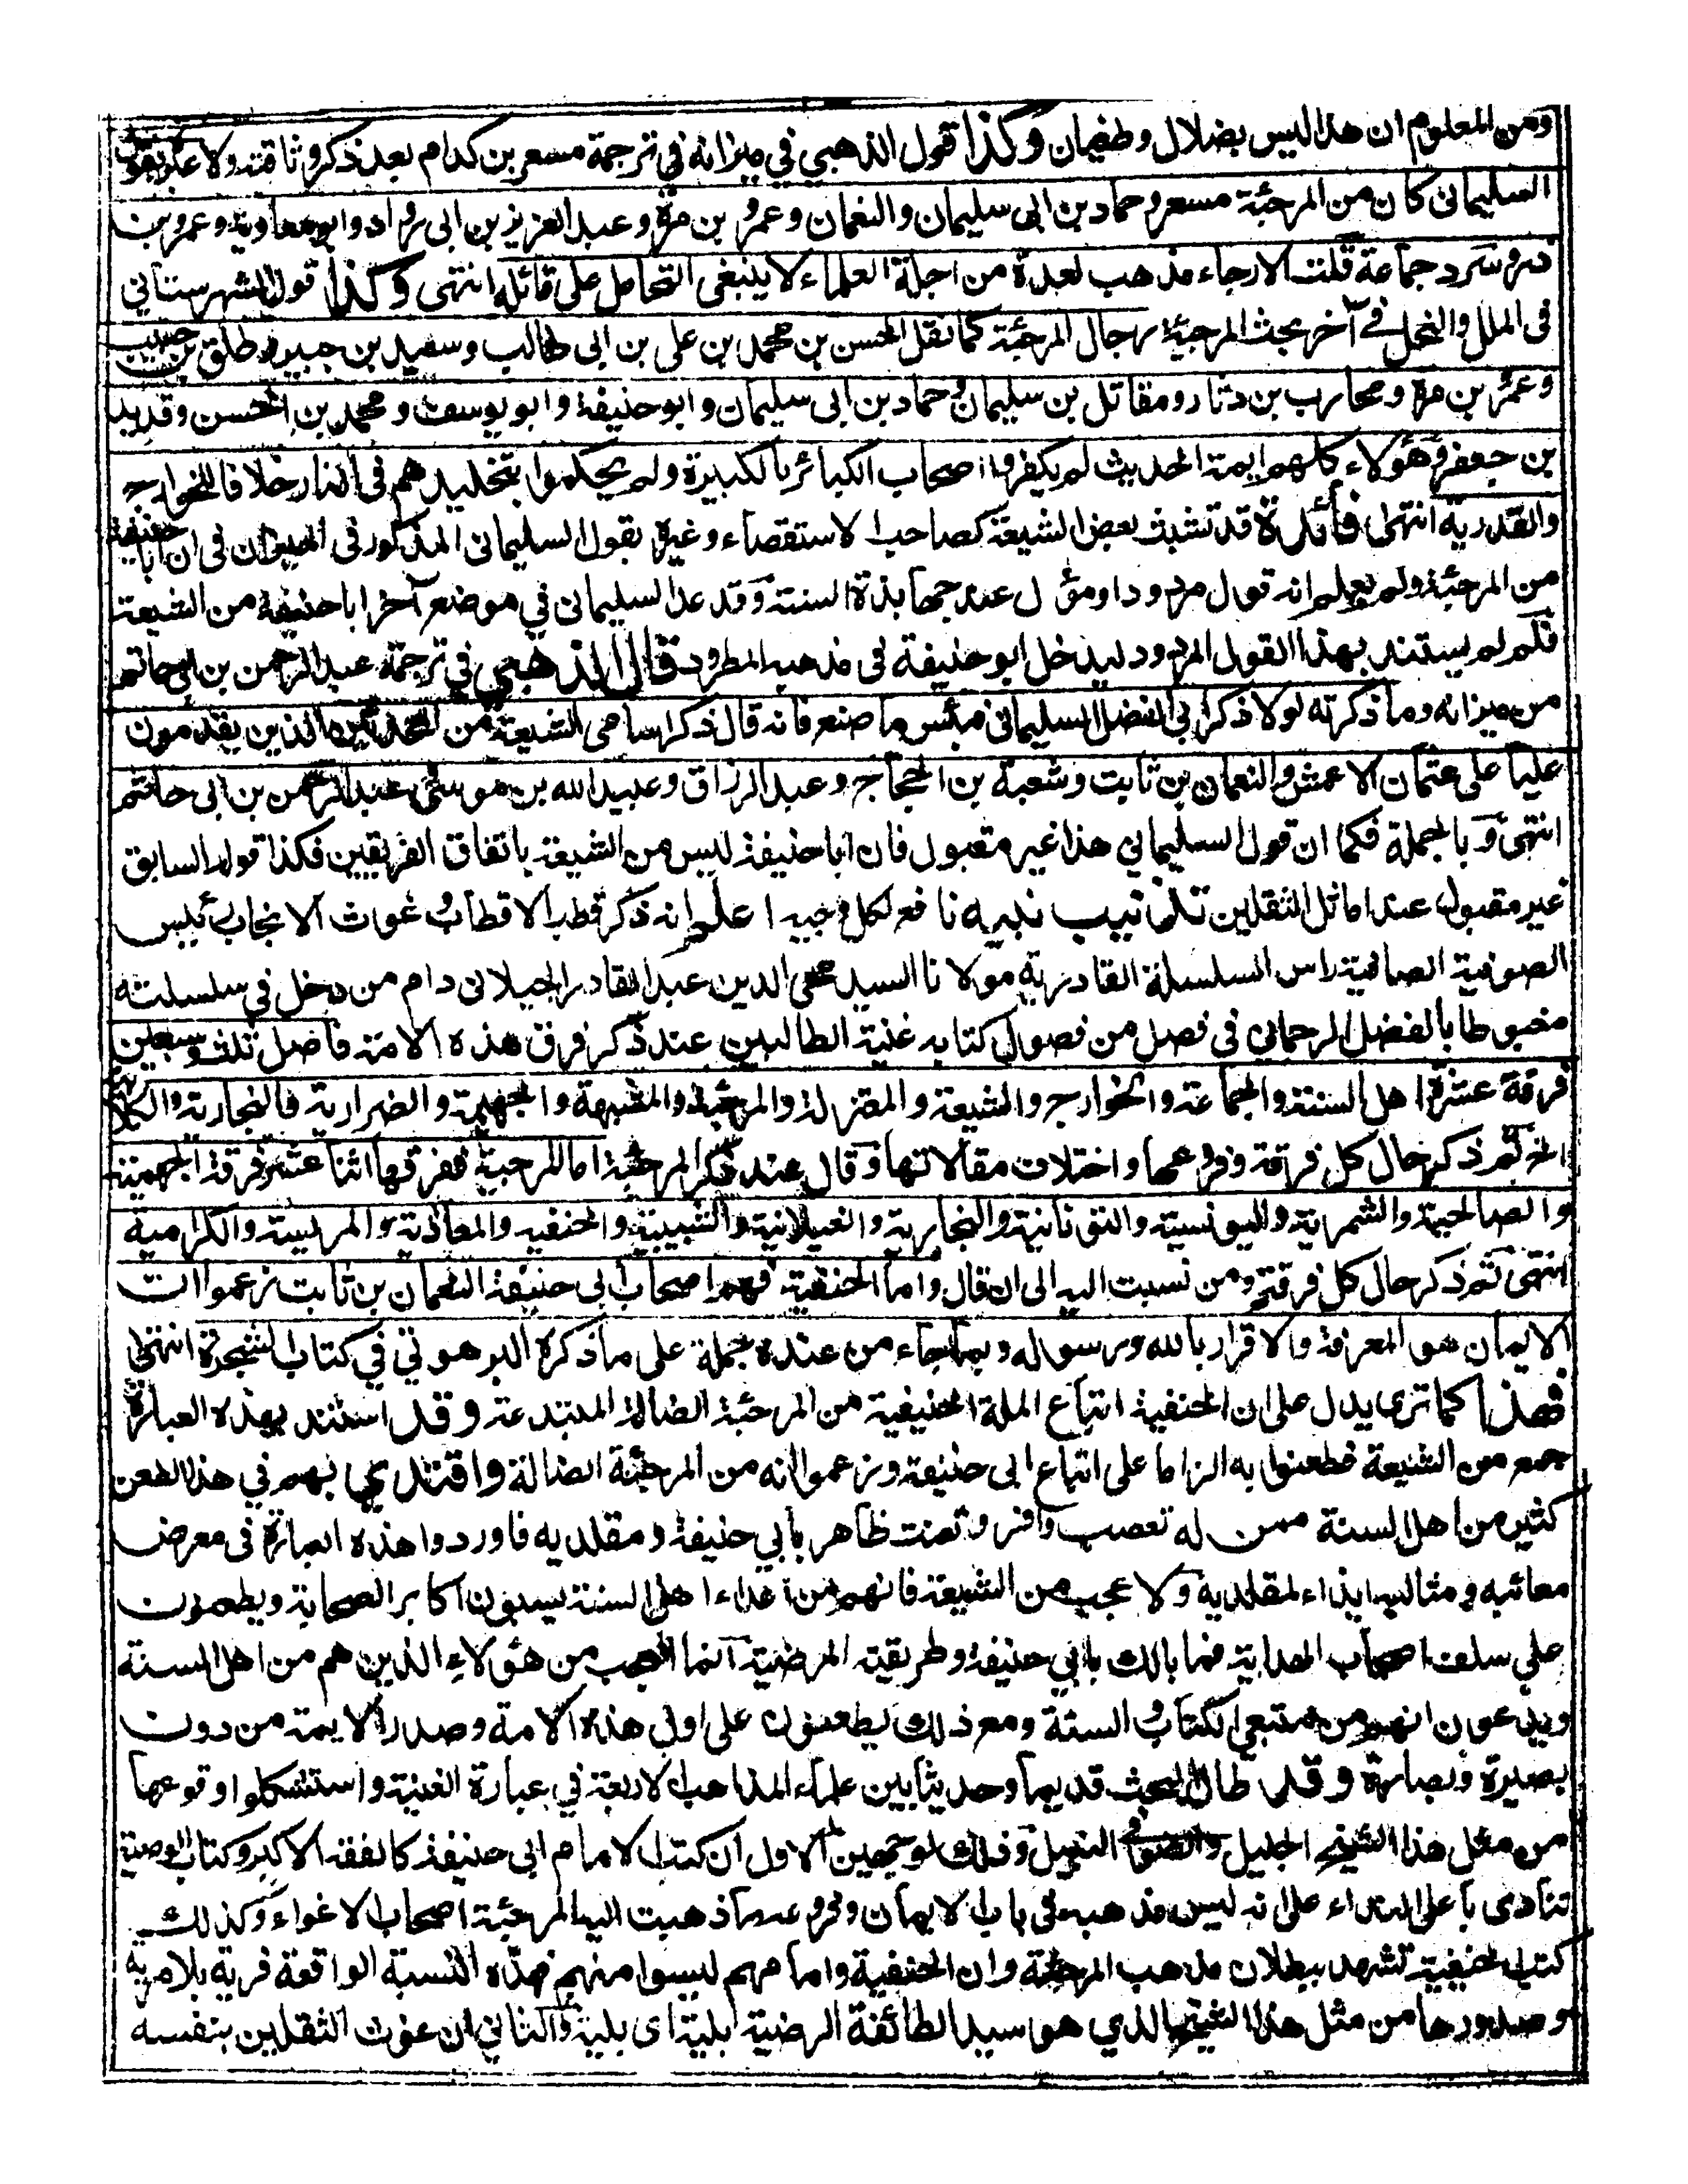 ومن المعلوم ان هذا ليس بضلال وطغيان وكذا قول الذهبي في ميزانه في ترجمة مسعر بن كدام بعد ذكر وثاقته ولا عبرة بقول
السليمانى كان من المرجئة مسعر وحماد بن ابى سليمان والنعمان وعمرو بن مرة وعبد العزيز بن ابى رواد وابو معاوية وعمرو بن
ذر وسرد جماعة قلت الارجاء مذهب لعدة من اجلة العلماء لا ينبغى التحامل على قائله انتهى وكذا قول الشهرستاني
فى الملل والنحل في آخر بحث المرجئة رجال المرجئة كما نقل الحسن بن محمد بن على بن ابى طالب وسعيد بن جبير وطلق بن حبيب
وعمرو بن مرة ومحارب بن دثار ومقاتل بن سليمان وحماد بن ابى سليمان وابو حنيفة وابو يوسف ومحمد بن الحسن وقديد
بن جعفر وهؤلاء كلهم ايمة الحديث لم يكفروا اصحاب الكبائر بالكبيرة ولم يحكموا بتخليدهم فى النار خلافا للخوارج
والقدرية انتهى فائدة قد تشبث بعض الشيعة كصاحب الاستقصاء وغيره بقول السليمانى المذكور فى الميزان فى ان ابا حنيفة
من المرجئة ولم يعلم انه قول مردود او مؤل عند جهابذة السنة وقد عد السليمانى في موضع آخر ابا حنيفة من الشيعة
فلم لم يستند بهذا القول المردود ليدخل ابو حنيفة فى مذهبه المطرود قال الذهبي في ترجمة عبد الرحمن بن ابى حاتم
من ميزانه وما ذكرته لولا ذكر ابى الفضل السليمانى فبئس ما صنع فانه قال ذكر اسامى الشيعة من المحدثين الذين يقدمون
عليا على عثمان الاعمش والنعمان بن ثابت وشعبة بن الحجاج وعبد الرزاق وعبيد الله بن موسى وعبد الرحمن بن ابى حاتم
انتهى وبالجملة فكما ان قول السليماني هذا غير مقبول فان ابا حنيفة ليس من الشيعة باتفاق الفريقين فكذا قوله السابق
غير مقبول عند اماثل الثقلين تذنيب نبيه نافع لكل وجيه اعلم انه ذكر قطب الاقطاب وغوث الانجاب رئيس
الصوفية الصافية راس السلسلة القادرية مولانا السيد محيى الدين عبد القادر الجيلانى دام من دخل في سلسلته
مغبوطا بالفضل الرحماني فى فصل من فصول كتابه غنية الطالبين عند ذكر فرق هذه الامة فاصل ثلث وسبعين
فرقة عشرة اهل السنة والجماعة والخوارج والشيعة والمعتزلة والمرجئة والمشبهة والجهمية والضرارية والنجارية والكلابية
الخ ثم ذكر حال كل فرقة وفروعها واختلاف مقالاتها وقال عند ذكر المرجئة اما المرجية ففرقها اثنا عشر فرقة الجهمية
والصالحية والشمرية واليونسية والثوبانية والنجارية والغيلانية والشبيبية والحنفيه والمعاذية والمريسية والكرامية
انتهى ثم ذكر حال كل فرقة ومن نسبت اليه الى ان قال واما الحنفية فهم اصحاب ابى حنيفة النعمان بن ثابت زعموا ان
الايمان هو المعرفة والاقرار بالله ورسوله وبما جاء من عنده جملة على ما ذكره البرهوتي في كتاب الشجرة انتهى
فهذا كما ترى يدل على ان الحنفية اتباع الملة الحنيفية من المرجئة الضالة المبتدعة وقد استند بهذه العبارة
جمع من الشيعة فطعنوا به الزاما على اتباع ابى حنيفة وزعموا انه من المرجئة الضالة واقتدى بهم في هذا الطعن
كثير من اهل السنة ممن له تعصب وافر وتعنت ظاهر بأبي حنيفة ومقلديه فاوردوا هذه العبارة فى معرض
معائبه ومثالبه ايذاء لمقلديه ولا عجب من الشيعة فانهم من اعداء اهل السنة يسبون اكابر الصحابة ويطعنون
على سلف اصحاب الهداية فما بالك بابي حنيفة وطريقته المرضية انما العجب من هؤلاء الذين هم من اهل السنة
ويدعون انهم من متبعي الكتاب والسنة ومع ذلك يطعنون على اول هذه الامة وصدر الايمة من دون
بصيرة وبصارة وقد طال البحث قديما وحديثا بين علماء المذاهب الاربعة في عبارة الغنية واستشكلوا وقوعها
من مثل هذا الشيخ الجليل والصوفي النبيل وذلك لوجهين الاول ان كتب الامام ابى حنيفة كالفقه الاكبر وكتاب الوصية
تنادى باعلى النداء على انه ليس مذهبه فى باب الايمان وفروعه ما ذهبت اليه المرجئة اصحاب الاغواء وكذلك
كتب الحنفية تشهد ببطلان مذهب المرجئة وان الحنفية وامامهم ليسوا منهم فهذه النسبة الواقعة فرية بلا مرية
وصدورها من مثل هذا الشيخ الذي هو سيد الطائفة الرضية ابلية اى بلية والثاني ان غوث الثقلين بنفسه